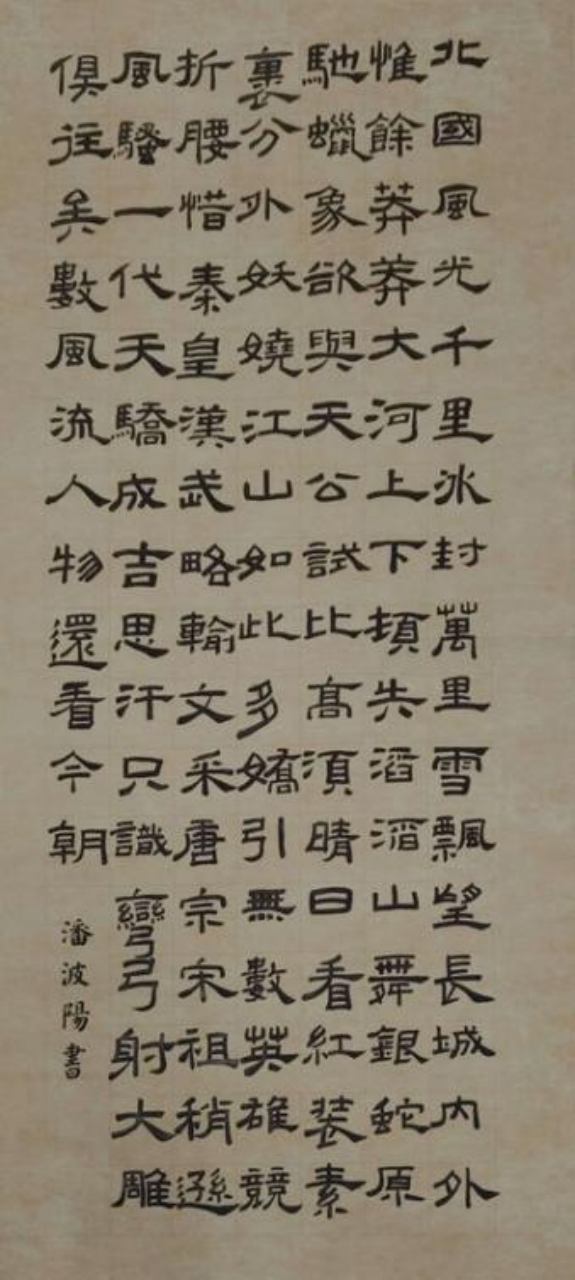 北國風光千里冰封萬里雪飄望長城内外
惟餘莽莽大河上下頓失滔滔山舞銀蛇原
馳蠟象欲與天公試比高須晴日看紅裝素
裹分外妖嬈江山如此多嬌引無數英雄競
折腰惜秦皇漢武略輸文采唐宗宋祖稍遜
風騷一代天驕成吉思汗只識彎弓射大雕
俱往矣數風流人物還看今朝
潘波陽書